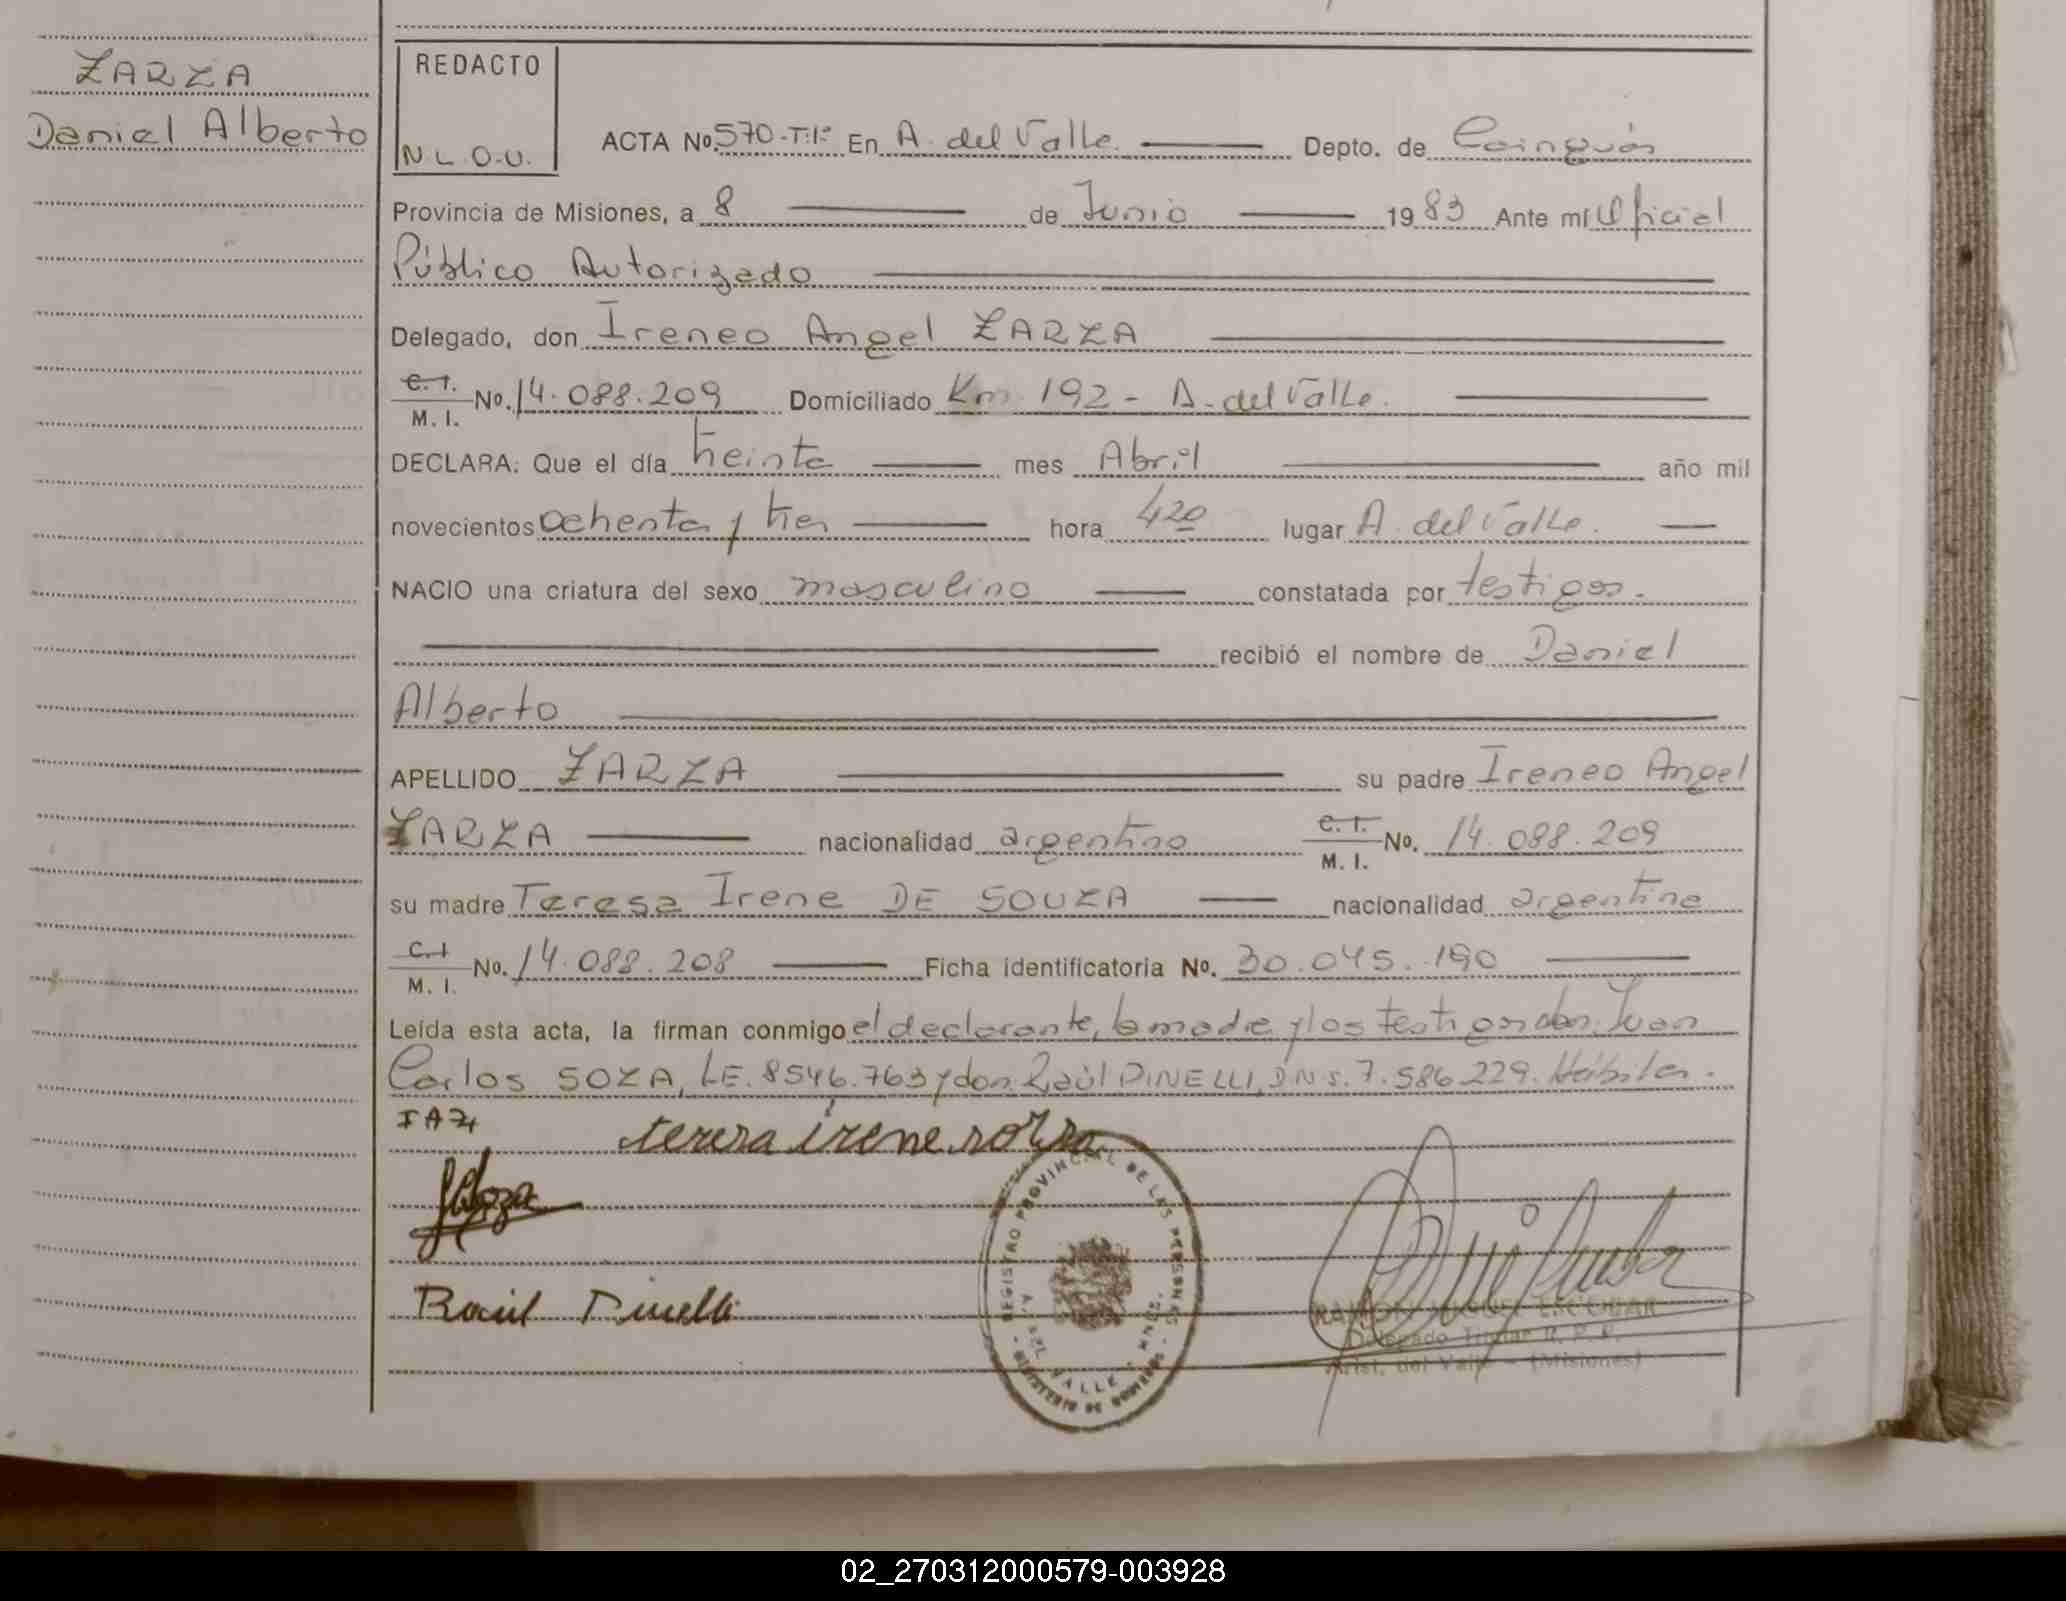 ZARZA
Daniel Alberto
REDACTO
N L. O-U.
ACTA No. 570-T:1º En A. del Valle. Depto. de Cainguás
Provincia de Misiones, a 8 de Junio 1983 Ante mí Oficial
Público Autorizado
Delegado, don Ireneo Angel ZARZA
C. I.
M. I. No. 14.088.209 Domiciliado Km 192 - A. del Valle.
DECLARA: Que el día treinta mes Abril año mil
novecientos ochenta y tres hora 4 20 lugar A. del Valle.
NACIO una criatura del sexo masculino constatada por testigos.
recibió el nombre de Daniel
Alberto
APELLIDO ZARZA su padre Ireneo Angel
ZARZA nacionalidad argentino C. I.
M. I. No. 14.088.209
su madre Teresa Irene DE SOUZA nacionalidad argentina
C. I
M. I. No. 14.088.208 Ficha identificatoria No. 30.045.190
Leída esta acta, la firman conmigo el declarante, la madre y los testigos don Juan
Carlos SOZA, LE. 8546.763 y don Raúl DINELLI, 7.586.229. Hábiles.
IAZ
teresa irene
Raúl Dinelli
REGISTRO PROVINCIAL DE LAS PERSONAS
A. DEL VALLE - MNES.
MINISTERIO DE GOBIERNO
RAMON MIGUEL ESCOBAR
Delegado Titular R. P. P.
Arist. del Valle - (Misiones)
02_270312000579-003928